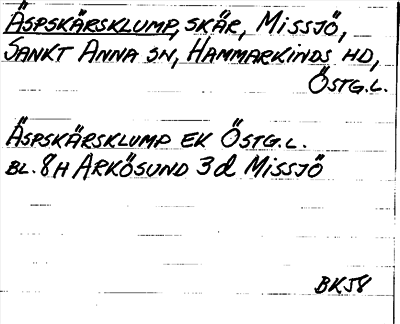 Äspskärsklump, skär, Missjö,
Sankt Anna sn, Hammarkinds hd,
Östg.l.
Äspskärsklump EK Östg.l.
bl. 8H Arkösund 3d Missjö
BKJ8